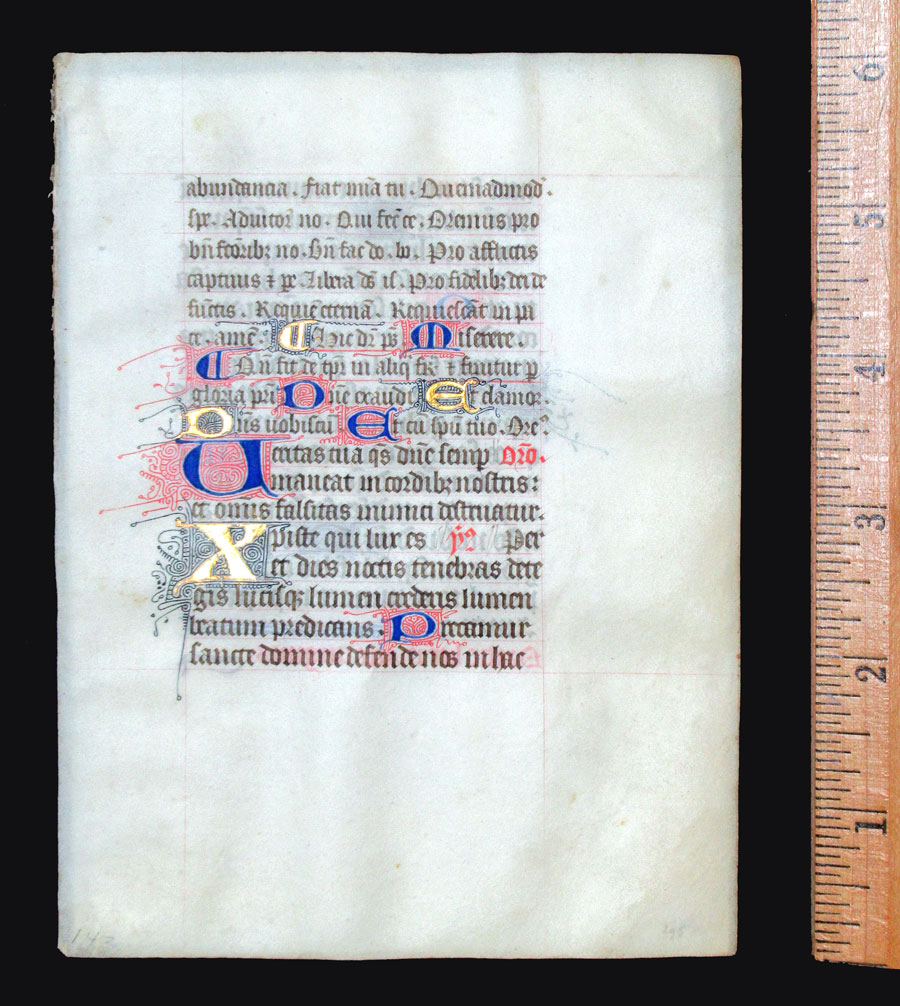 abundancia . Fiat mīa tu . Quēadmod .
spe . Adiutoꝛ no . Qui fec̄ ce . Oremus pro
bn̄ fcōribꝫ no . Bn̄ fac do . Pro afflictis
captiuis ⁊ pe . Libera ds̄ is . Pro fidelibꝫ dei de
fūctis . Requiē eternā . Requiescāt in pa
ce . amē . Hic dr̄ ps̄ Miserere .
Cūn fit de tp̄r in aliq̄ fīz ⁊ finitur p
gloria pr̄i Dn̄e exaudi Et clamoꝛ .
Dn̄s uobiscū Et cū spū tuo . Ore᷑
Ueritas tua qs̄ dn̄e semp oꝛo .
maneat in cordibꝫ nostris :
et om̄is falsitas inimici destruatur .
Xpiste qui lux es Per
et dies noctis tenebras dete
gis lucisqꝫ lumen crederis lumen
beatum predicans . Precamur
sancte domine defende nos in hac
143
6
5
4
3
2
1